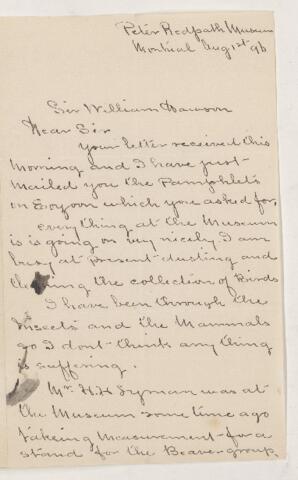 Peter Redpath Museum
Montreal Aug 1st 96
Sir William Dawson
Dear Sir
Your letter received this
morning and I have just
mailed you the Pamphlets
on Eozoon which you asked for,
everything at the Museum
is is going on very nicely I am
busy at present dusting and
cleaning the collection of Birds
I have been through the
Insects and the Mammals
so I dont think any thing
is suffering.
Mr. H.H Lyman was at
the Museum some time ago
takeing measurement for a
stand for the Beaver group,